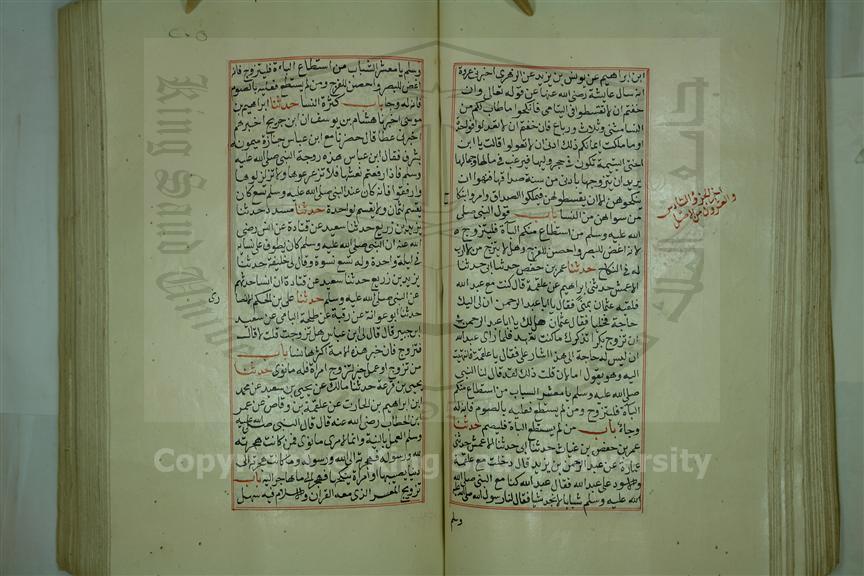 ابن ابراهيم عن يونس بن يزيد عن الزهري اخبرني عروة
انه سال عايشة رضي الله عنها عن قوله تعالى وان
خفتم ان لا تقسطوا في اليتامى فانكحوا ما طاب لكم من
النسا مثنى وثلاث ورباع فان خفتم ان لا تعدلوا فواحدة
او ما ملكت ايمانكم ذلك ادنى ان لا تعولوا قالت يا ابن
اختي اليتيمة تكون في حجر وليها فيرغب في مالها وجمالها
يريد ان يتزوجها بادنى من سنة صداقها فنهوا ان
ينكحوهن الا ان يقسطوا لهن فيكملوا الصداق وامروا بنكاح
من سواهن من النسا باب قول النبي صلى
الله عليه وسلم من استطاع منكم الباة فليتزوج
لانه اغض للبصر واحصن للفرج وهل يتزوج من لا ارب
له في النكاح حدثنا عمر بن حفص حدثنا ابي حدثنا
الاعمش حدثني ابراهيم عن علقمة قال كنت مع عبد الله
فلقيه عثمان بمنى فقال يا ابا عبد الرحمن ان لي اليك
حاجة فخليا فقال عثمان هل لك يا ابا عبد الرحمن في
ان نزوجك بكرا تذكرك ما كنت تعهد فلما راى عبد الله
ان ليس له حاجة الى هذا اشار الي فقال يا علقمة فانتهيت
اليه وهو يقول اما لئن قلت ذلك لقد قال لنا النبي
صلى الله عليه وسلم يا معشر الشباب من استطاع منكم
الباة فليتزوج ومن لم يستطع فعليه بالصوم فانه له
وجاء باب من لم يستطع الباة فليصم حدثنا
عمر بن حفص بن غياث حدثنا ابي حدثنا الاعمش حدثني
عمارة عن عبد الرحمن بن يزيد قال دخلت مع علقمة
والاسود على عبد الله فقال عبد الله كنا مع النبي صلى الله
عليه وسلم شبابا لا نجد شيا فقال لنا رسول الله صلى الله عليه
وسلم
وسلم يا معشر الشباب من استطاع الباءة فليتزوج فانه
اغض للبصر واحصن للفرج ومن لم يستطع فعليه بالصوم
فانه له وجا باب كثرة النسا حدثنا ابراهيم بن
موسى اخبرنا هشام بن يوسف ان ابن جريج اخبرهم
اخبرني عطا قال حضرنا مع ابن عباس جنازة ميمونة
بسرف فقال ابن عباس هذه زوجة النبي صلى الله عليه
وسلم فاذا رفعتم نعشها فلا تزعزعوها ولا تزلزلوها
وارفقوا فانه كان عند النبي صلى الله عليه وسلم تسع كان
يقسم لثمان ولا يقسم لواحدة حدثنا مسدد حدثنا
يزيد بن زريع حدثنا سعيد عن قتادة عن انس رضي
الله عنه ان النبي صلى الله عليه وسلم كان يطوف على نسائه
في ليلة واحدة وله تسع نسوة وقال لي خليفة حدثنا
يزيد بن زريع حدثنا سعيد عن قتادة ان انسا حدثهم
عن النبي صلى الله عليه وسلم حدثنا علي بن الحكم الانصاري
حدثنا ابو عوانة عن رقبة عن طلحة اليامي عن سعيد
ابن جبير قال قال لي ابن عباس هل تزوجت قلت لا قال
فتزوج فان خير هذه الامة اكثرها نسا باب
من هاجر او عمل خيرا لتزويج امراة فله ما نوى حدثنا
يحيى بن قزعة حدثنا مالك عن يحيى بن سعيد عن محمد
ابن ابراهيم بن الحارث عن علقمة بن وقاص عن عمر
بن الخطاب رضي الله عنه قال قال النبي صلى الله عليه
وسلم العمل بالنية وانما لامرئ ما نوى فمن كانت هجرته
الى الله ورسوله فهجرته الى الله ورسوله ومن كانت هجرته الى
دنيا يصيبها او امراة ينكحها فهجرته الى ما هاجر اليه باب
تزويج المعسر الذي معه القران والاسلام فيه سهل
King Saud University
Copyright © King Saud University